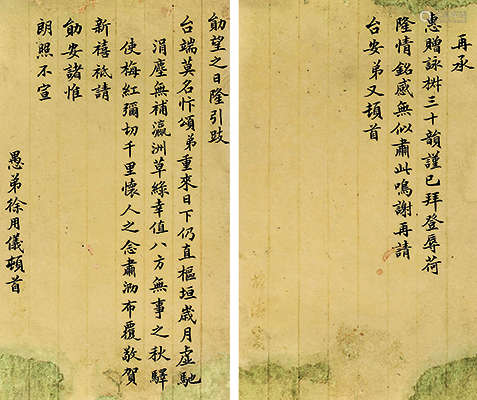 勛望之日隆引跂
台端莫名忭頌弟重來日下仍直樞垣歲月虛馳
涓塵無補瀛洲草綠幸值八方無事之秋驛
使梅紅彌切千里懷人之念肅泐布覆敬賀
新禧祗請
勛安諸惟
朗照不宣
愚弟徐用儀頓首
再承
惠贈詠三十韻謹已拜登辱荷
隆情銘感無似肅此鳴謝再請
台安弟又頓首